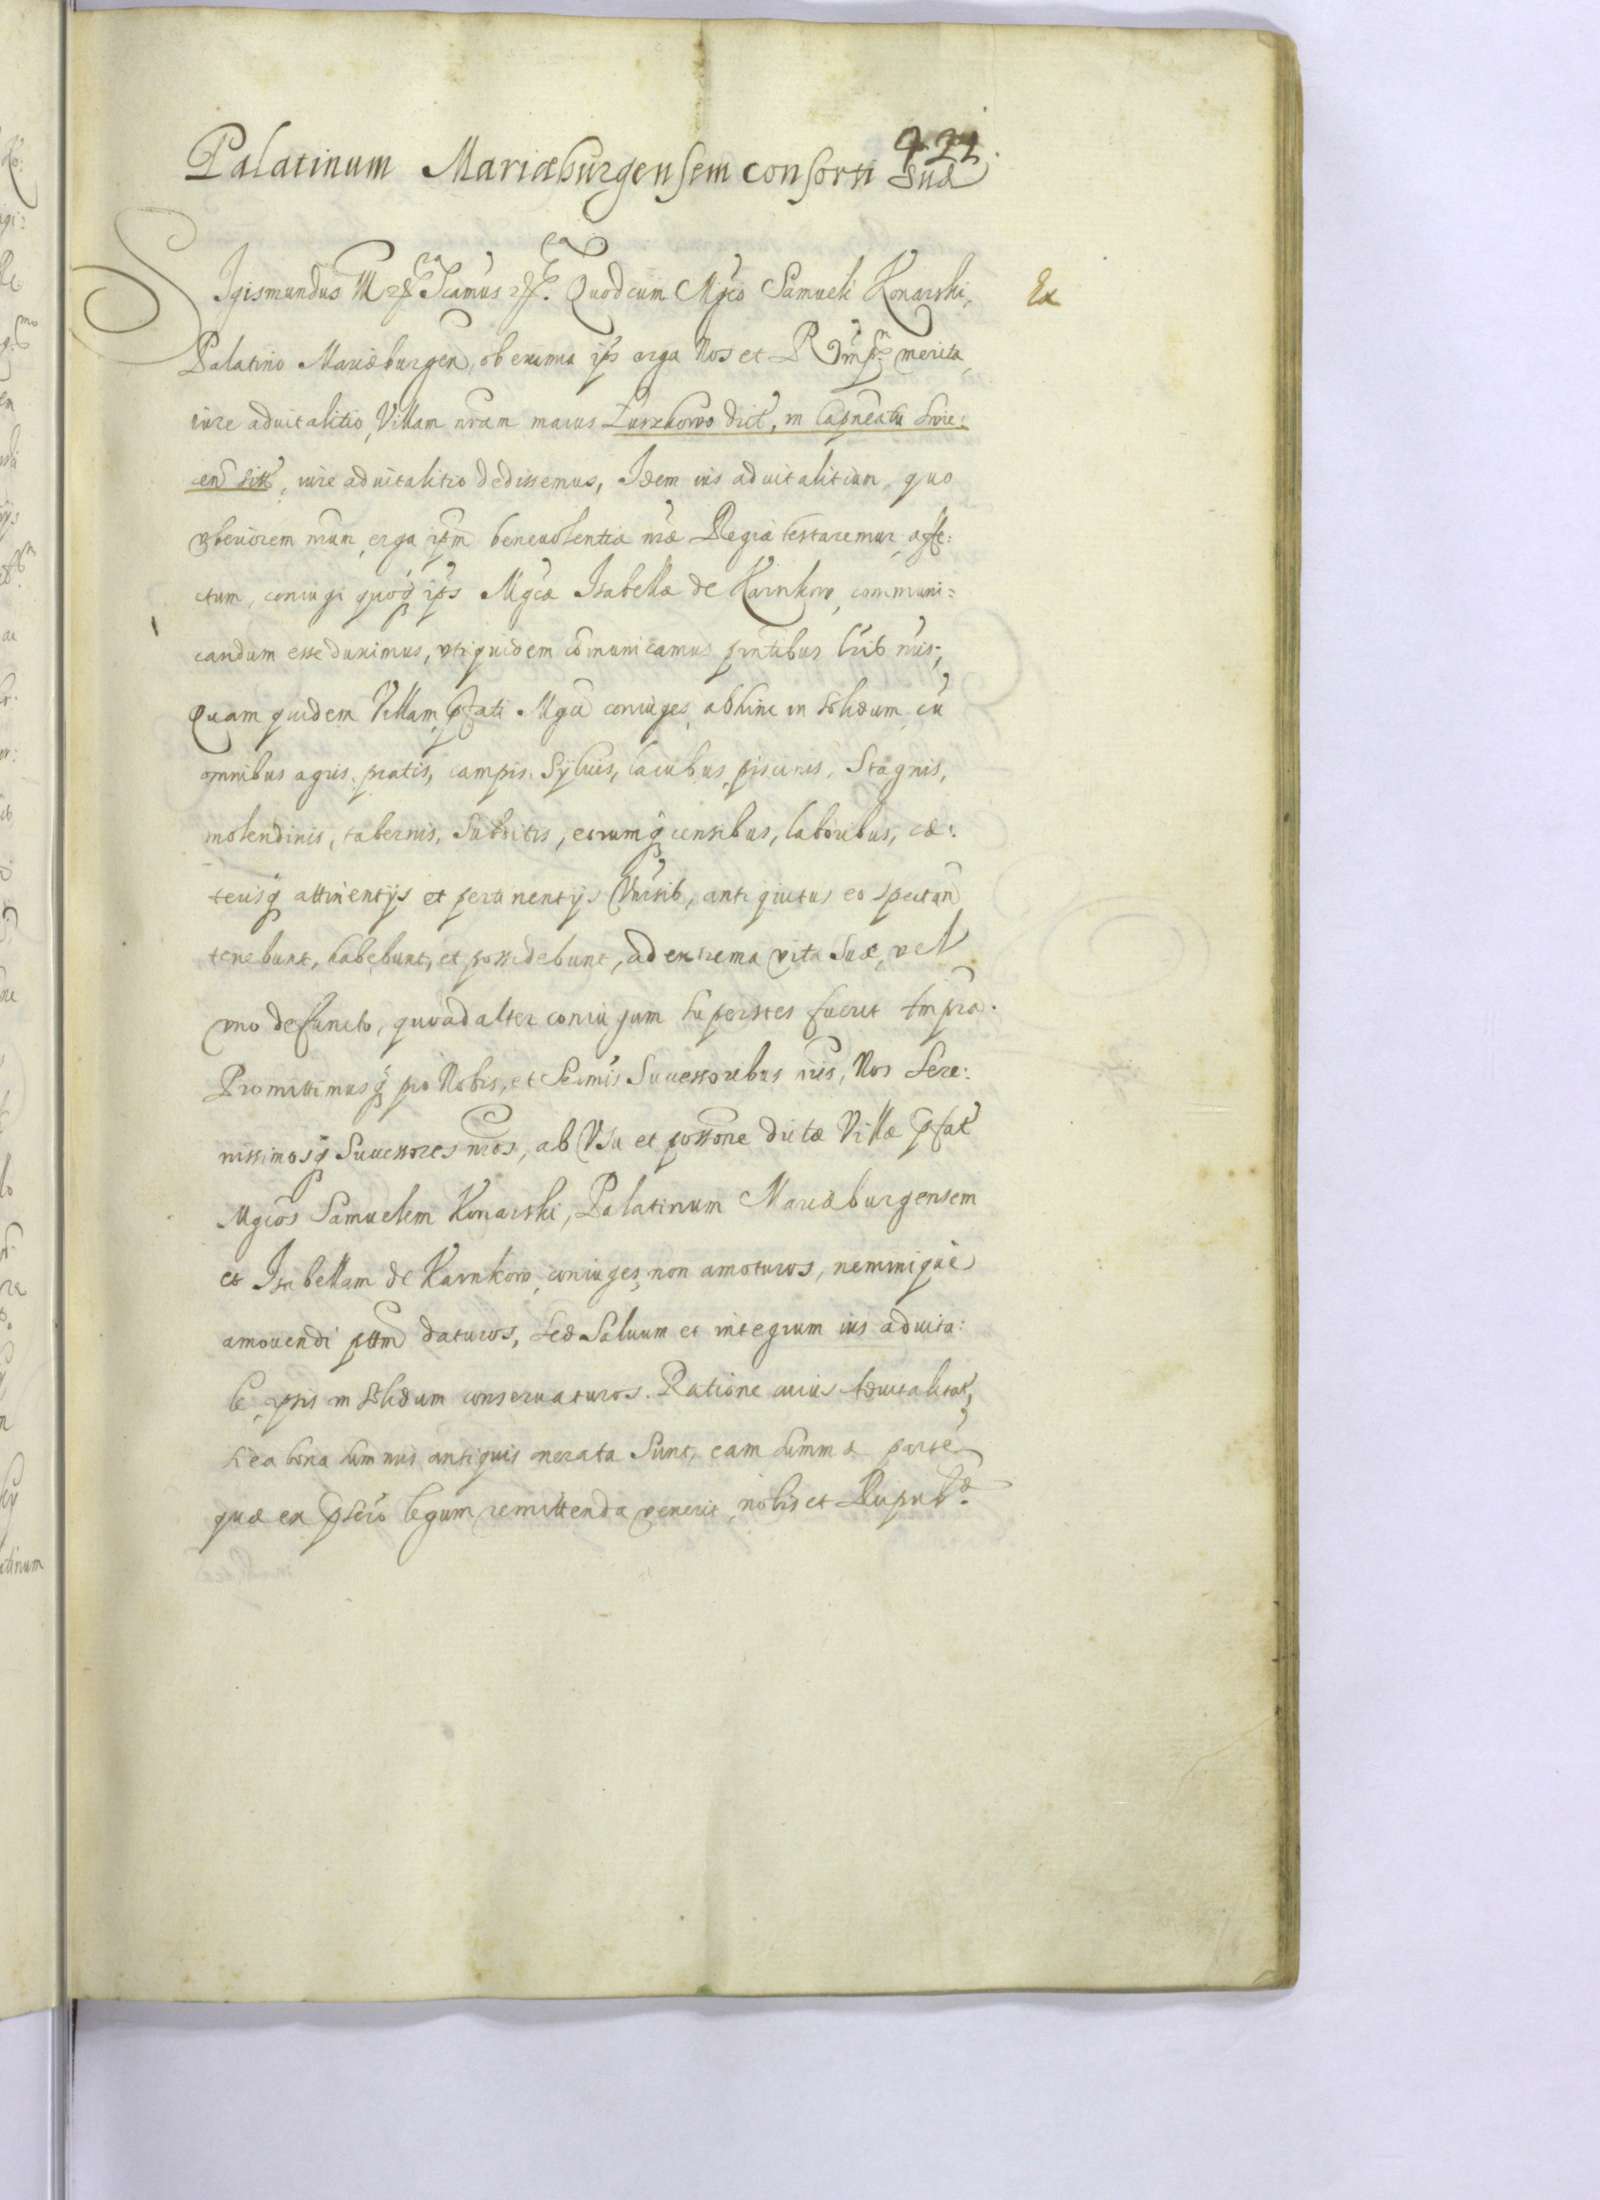 421.
Palatinum Mariæburgensem consorti Suæ
SIgismundus III etc. Scamus etc. Quod cum Mgco Samueli Konarski, Ex
Palatino Mariæburgen, ob eximia ips erga Nos et R merita,
iure aduitalitio, Villam nram maius Luszkowo dict, in Capneatu Swie:
cen sit, iure aduitalitio dedissemus, Idem ius aduitalitium, quo
vberiorem nrum, erga ipm beneuolentiæ nræ Regiæ testaremur, affe:
ctum, coniugi quoq ips Mgcæ Isabellæ de Karnkow, communi:
candum esse duximus, vti quidem comunicamus pntibus lrib nris;
Quam quidem Villam, pfati Mgci coniuges, abhinc in solidum, cu
omnibus agris, pratis, campis, Syluis, lacubus, piscinis, Stagnis,
molendinis, tabernis, Subditis, eorumq censibus, laboribus, cæ:
terisq attinentijs et pertinentijs Vnrsib, antiquitus eo spectan
tenebunt, habebunt, et possidebunt, ad extrema vitæ Suæ, vel
vno defuncto, quoad alter coniugum superstes fuerit tmpra.
Promittimusq pro Nobis, et Sermis Successoribus nris, Nos Sere:
nissimosq Successores nros, ab Vsu et possone dictæ Villæ pfat
Mgcos Samuelem Konarski, Palatinum Mariæburgensem
et Isabellam de Karnkow, coniuges, non amoturos, neminique
amouendi pttm daturos, sed Saluum et integrum ius aduita:
le, ipsis in solidum conseruaturos. Ratione cuius Aduitalitat,
si ea bona summis antiquis onerata Sunt, eam summæ parte
quæ ex pscro legum remittenda venerit, nobis et Reipub